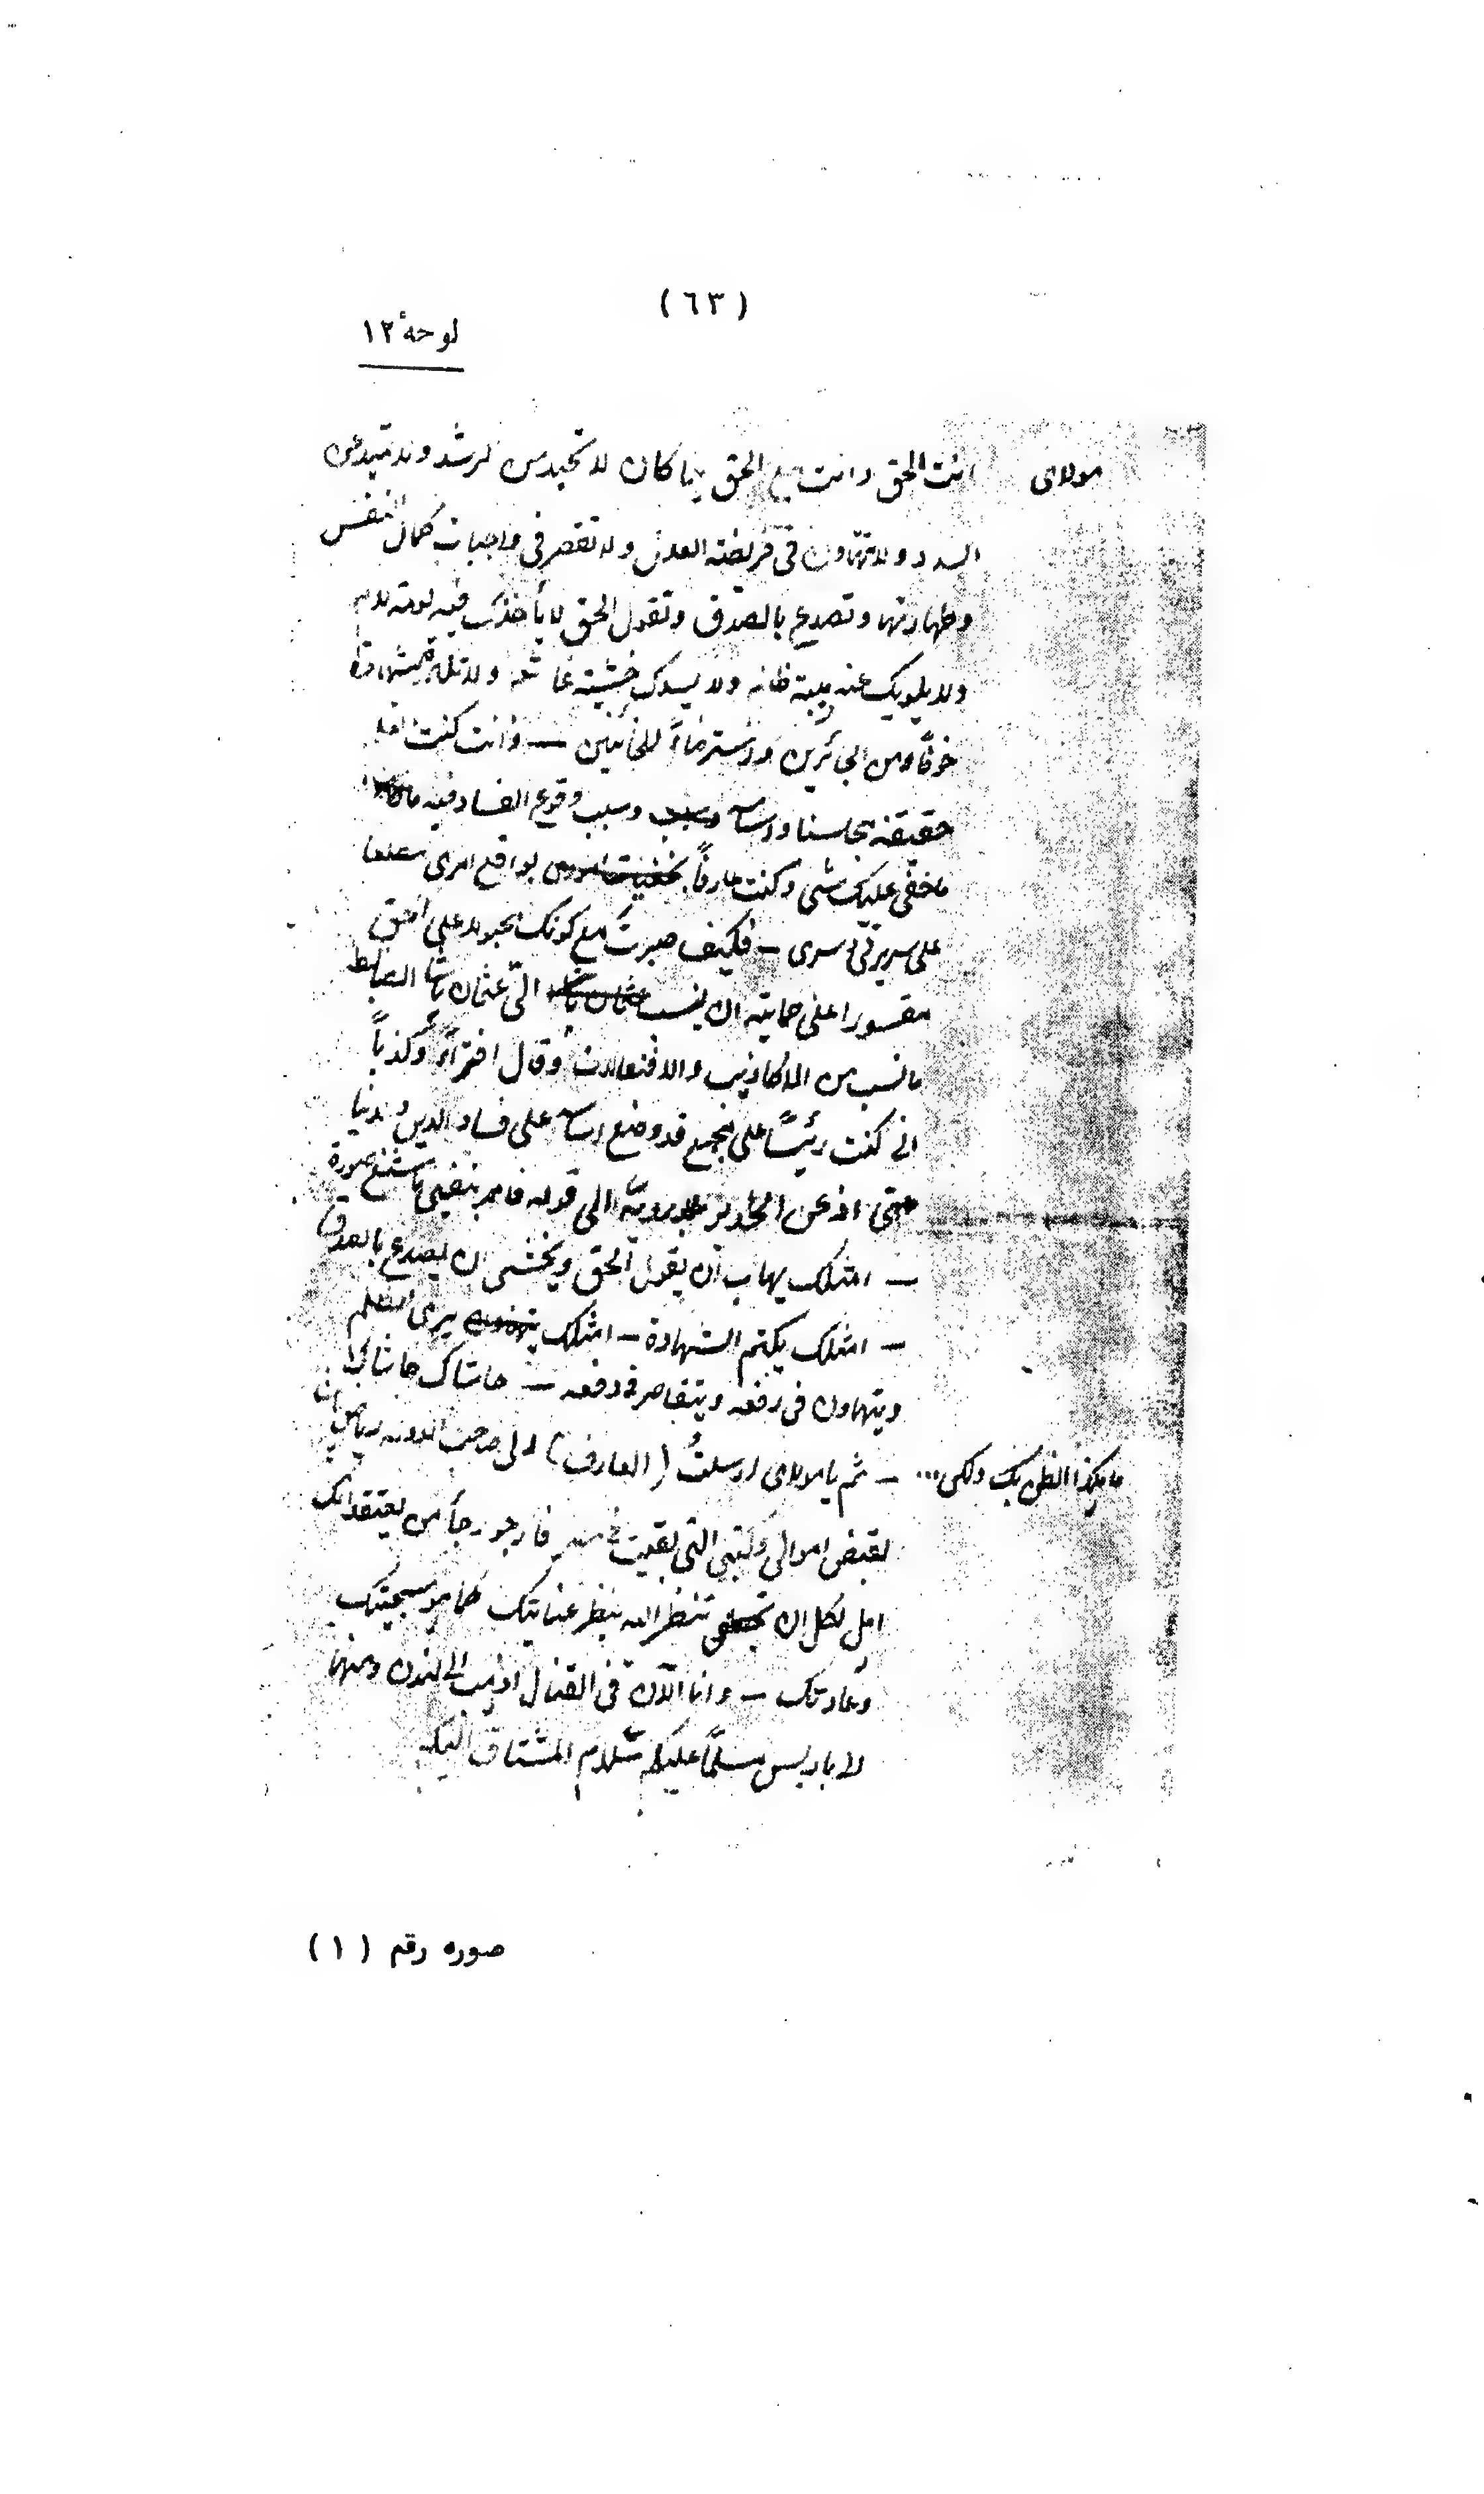 ( ٦٣ )
لوحة ١٢
مولاى انت الحق وانت مع الحق اينما كان لا تحيد عن الرشد ولا تميد عن
السداد ولا تتهاون فى فريضة العدل ولا تقصر فى واجبات كمال النفس
وطهارتها وتصدع بالصدق وتقول الحق لا يأخذك فيه لومة لائم
ولا يلويك عنه خشية ولا تكتم شهادة
خوفاً من الجائرين واسترضاءً للخائنين — وانت كنت
حقيقة مجلسنا واساسه وسبب وقوع الفساد فيه
ما خفى عليك شى وكنت عارفاً بواقع امرى مطلعا
على سريرتى وسرى — فكيف صبرت مع كونك مجبولا على الحق
مقسورا على حمايته ان ينسب الىّ عثمان باشا الضابط
ما نسب من الاكاذيب والافتعالات وقال افتراءً وكذباً
انى كنت رئيساً على مجمع قد وضع اساسه على فساد الدين والدنيا
حتى اذعن الخديو الى قوله فامر بنفيى باشنع صورة
— امثلك يهاب ان يقول الحق ويخشى ان يصدع بالصدق
— امثلك يكتم الشهادة — امثلك يرى الظلم
ويتهاون فى رفعه ويتقاصر فى دفعه — حاشاك حاشاك
ما هكذا الظن بك ولكن ... — ثم يا مولاى ارسلتُ (العارف) الى صاحب الدولة رياض باشا
لقبض اموالى وكتبى التى بقيت فى مصر فارجو رجأ من يعتقد انك
امل لكل ان تنظر اليه بنظر عنايتك كما هو سجيتك
وعادتك — وانا الآن فى القنال اذهب الى لندن ومنها
الى باريس مسلّماً عليكم سلام المشتاق اليكم
صوره رقم ( ١ )